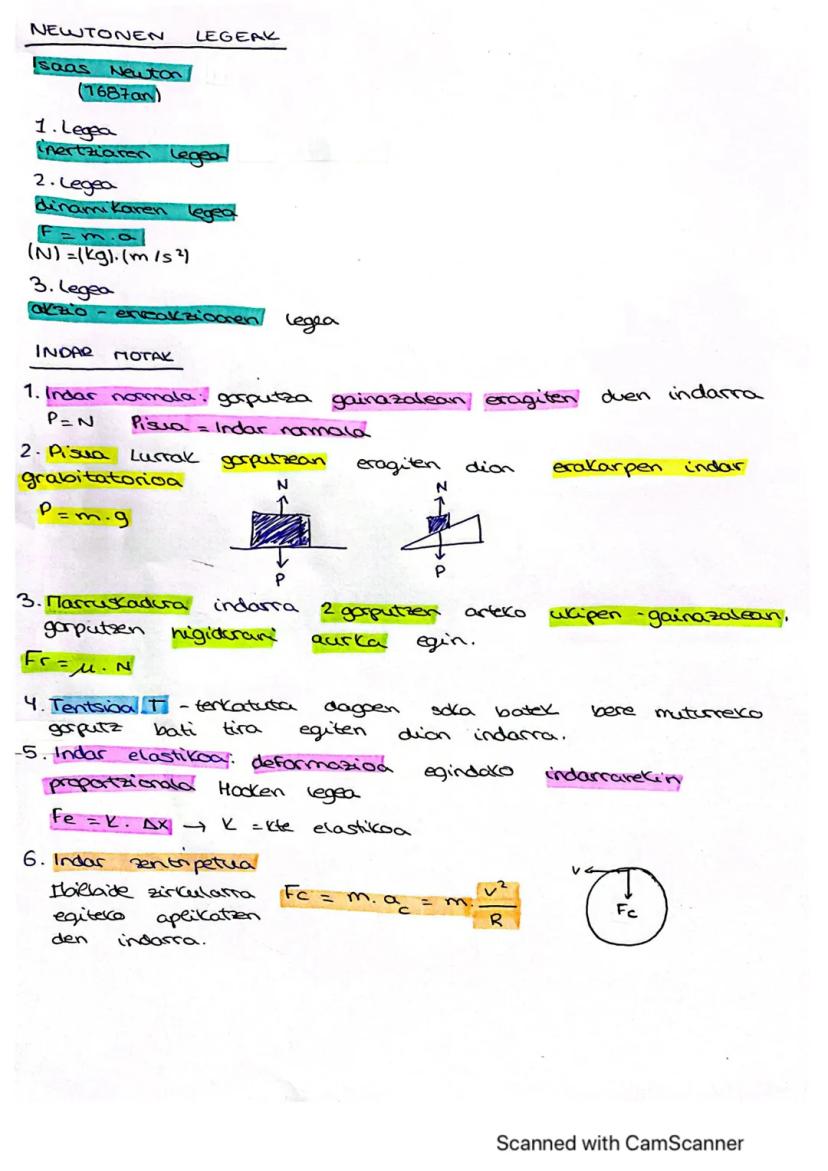 NEWTONEN LEGEAK
Isaas Newton
(1687an)
1. Legea
inertziaren legea
2. Legea
dinamikaren legea
F = m.a
(N) = (kg).(m/s²)
3. Legea
akzio - erreakzioaren legea
INDAR MOTAK
1. Indar normala: gorputza gainazalean eragiten duen indarra
P = N Pisua = Indar normala
2. Pisua Lurrak gorputzean eragiten dion erakarpen indar
grabitatorioa
N N
P = m.g
P P
3. Marruskadura indarra 2 gorputzen arteko ukipen-gainazalean,
gorputzen higidurari aurka egin.
Fr = μ. N
4. Tentsioa T - tenkatuta dagoen soka batek bere muturreko
gorputz bati tira egiten dion indarra.
-5. Indar elastikoa: deformazioa egindako indarrarekin
proportzionala Hooken legea
Fe = K. Δx → K = kte elastikoa
6. Indar zentripetua
Ibilbide zirkularra
egiteko aplikatzen
den indarra.
Fc = m. a_c = m. v²/R
v
Fc
Scanned with CamScanner